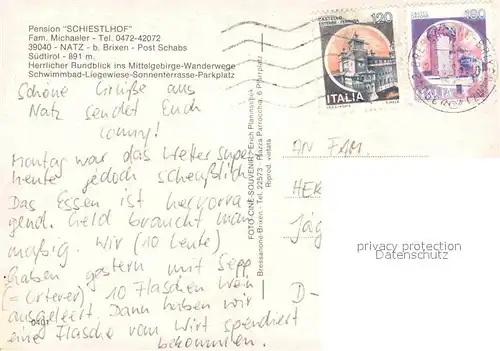 Pension "SCHIESTLHOF"
Fam. Michaeler - Tel. 0472-42072
39040 - NATZ - b. Brixen - Post Schabs
Südtirol - 891 m.
Herrlicher Rundblick ins Mittelgebirge-Wanderwege
Schwimmbad-Liegewiese-Sonnenterrasse-Parkplatz
Schöne Grüße aus
Natz sendet Euch
Conny!
Montag war das Wetter super
heute jedoch scheußlich
Das Essen ist hervorra
gend. Geld braucht man
maßig. Wir (10 Leute)
haben gestern mit Sepp
(= Orterer) 10 Flaschen Wein
ausgeleert. Dann haben wir
eine Flasche vom Wirt spendiert
bekommen.
0401
FOTO-CINE-SOUVENIR - Erich Planinschek
Bressanone-Brixen - Tel. 22573 - Piazza Parrocchia, 6 Pfarrplatz
Riprod. vietata
120
ITALIA
180
ITALIA
AN FAM.
HER
Jäg
D-
privacy protection